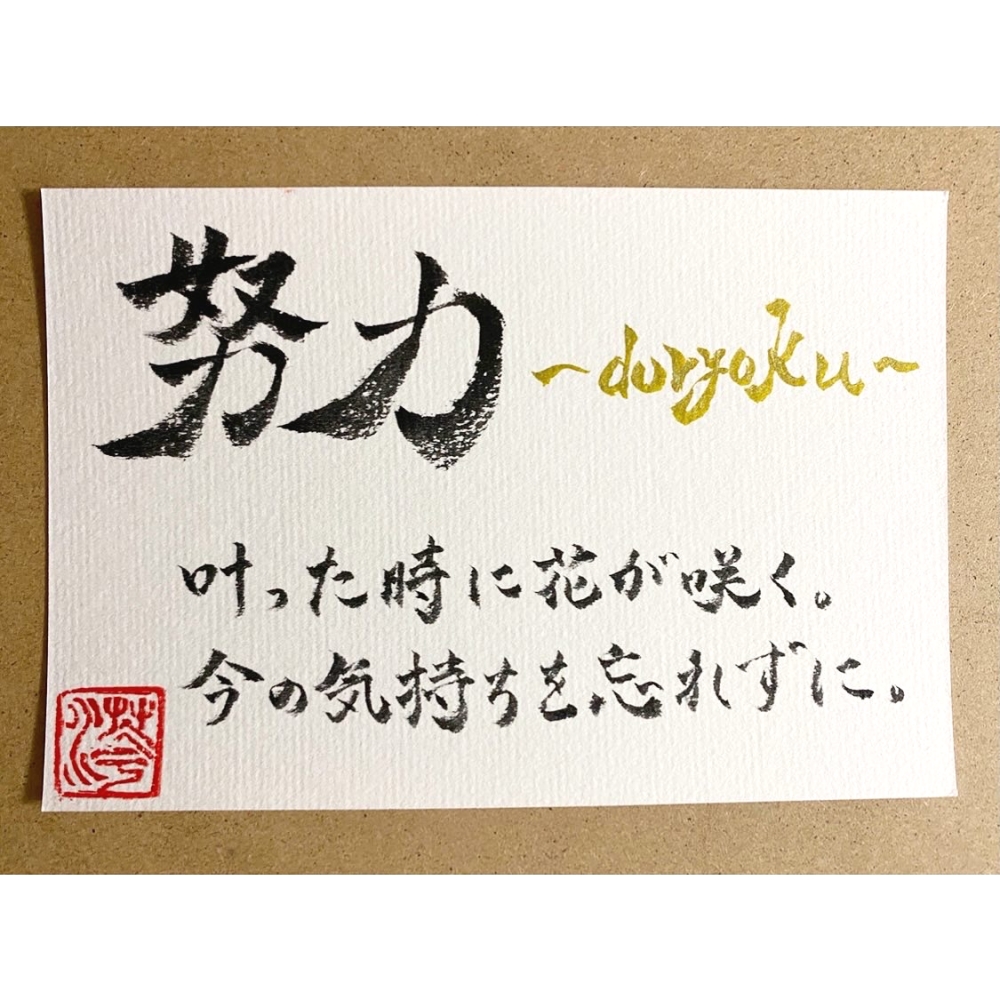 努力 ~doryoku~
叶った時に花が咲く。
今の気持ちを忘れずに。